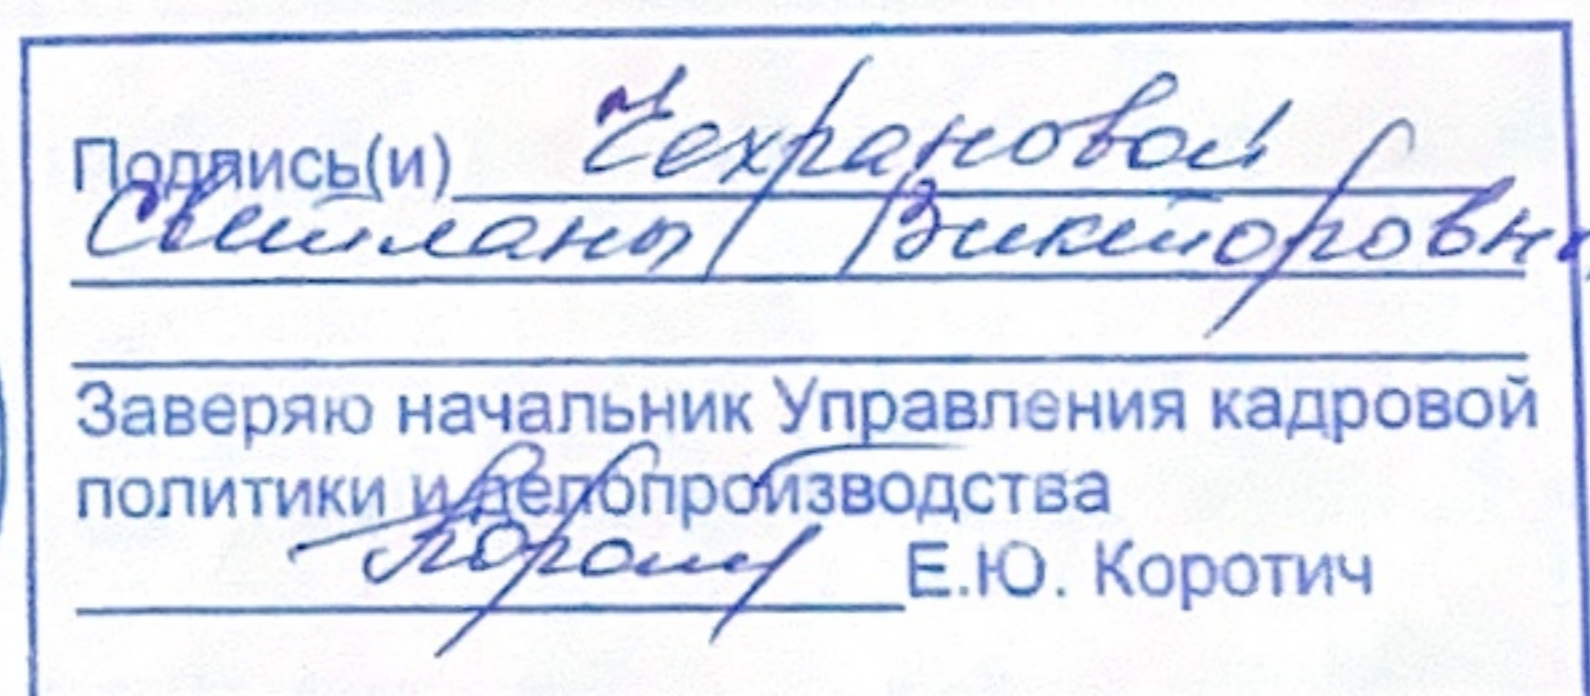 Подпись(и) Чехрановой
Светланы Викторовны
Заверяю начальник Управления кадровой
политики и делопроизводства
Е.Ю. Коротич